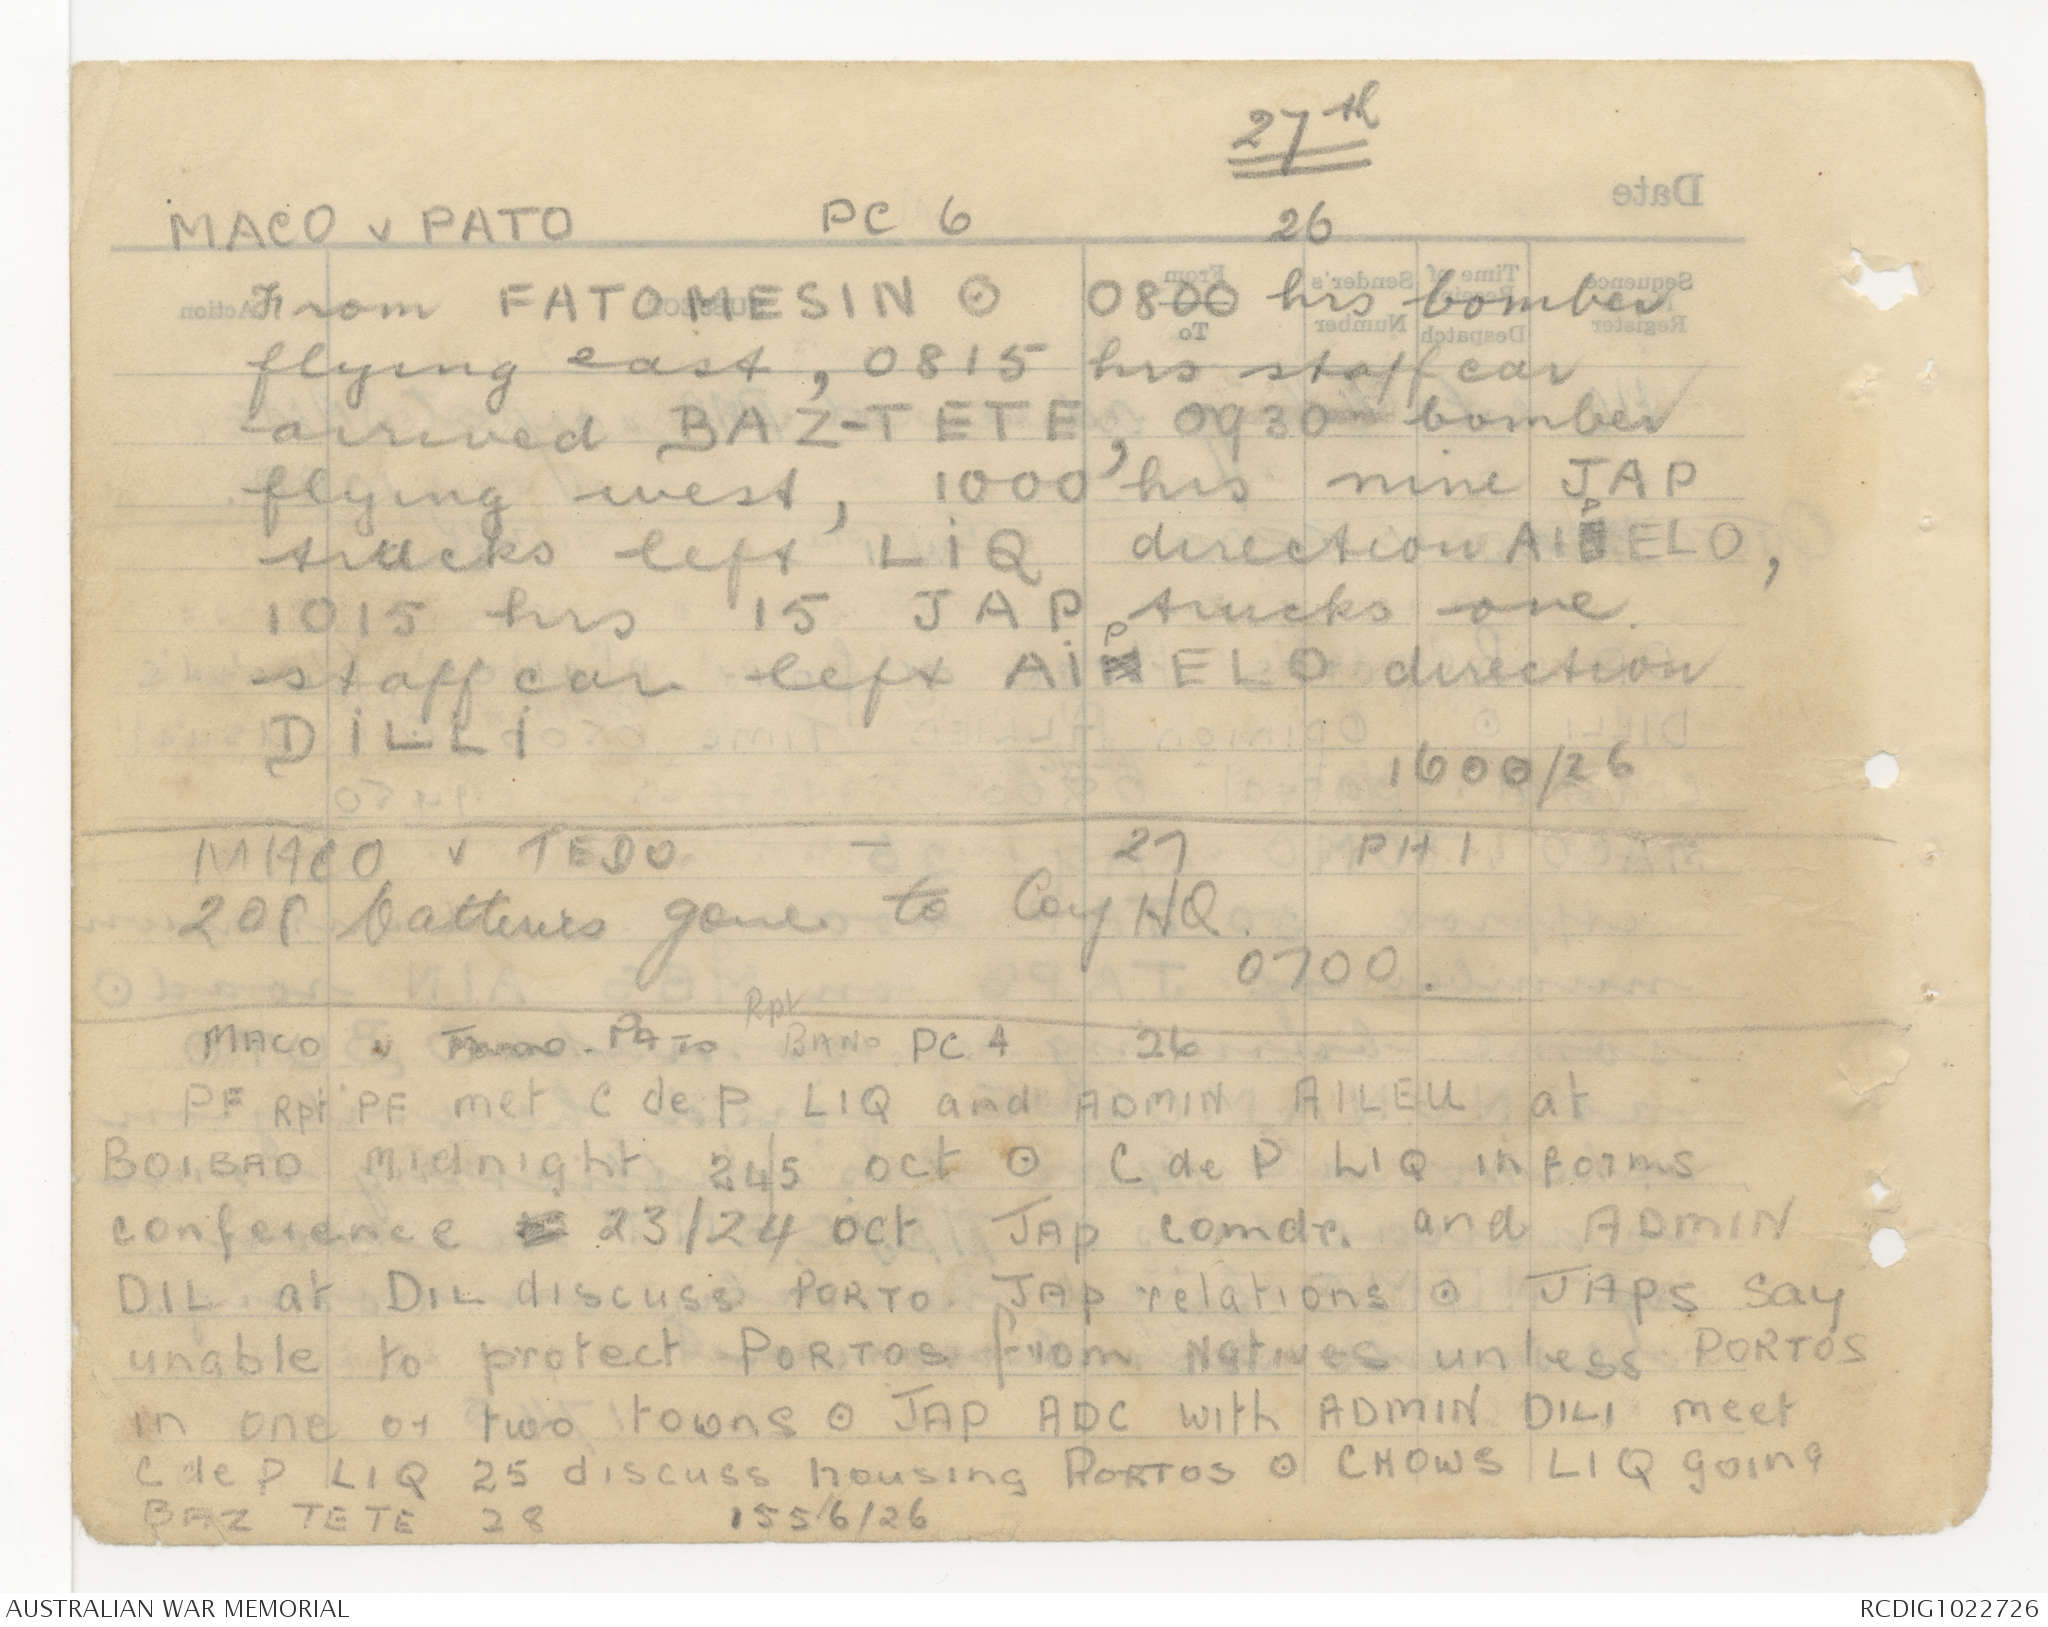 27th
MACO v PATO PC 6 26
From FATOMESIN ⊙ 0800 hrs bomber
flying east, 0815 hrs staff car
arrived BAZ-TETE, 0930 bomber
flying west, 1000 hrs nine JAP
trucks left LIQ direction AIPELO,
1015 hrs 15 JAP trucks one
staff car left AIPELO direction
DILLI
1600/26
MACO v TEDO — 27 PH 1
208 batteries gone to Coy HQ.
0700.
MACO v PATO Rpt BANO PC 4 26
PF Rpt PF met C de P LIQ and ADMIN AILEU at
BOIBAO midnight 24/5 oct ⊙ C de P LIQ informs
conference 23/24 oct JAP comdr. and ADMIN
DIL at DIL discuss PORTO JAP relations ⊙ JAPS say
unable to protect PORTOS from Natives unless PORTOS
in one or two towns ⊙ JAP ADC with ADMIN DILI meet
C de P LIQ 25 discuss housing PORTOS ⊙ CHOWS LIQ going
BAZ TETE 28 1556/26
Date
Sequence
Register
Time of
Despatch
Sender's
Number
From
To
Action
AUSTRALIAN WAR MEMORIAL
RCDIG1022726